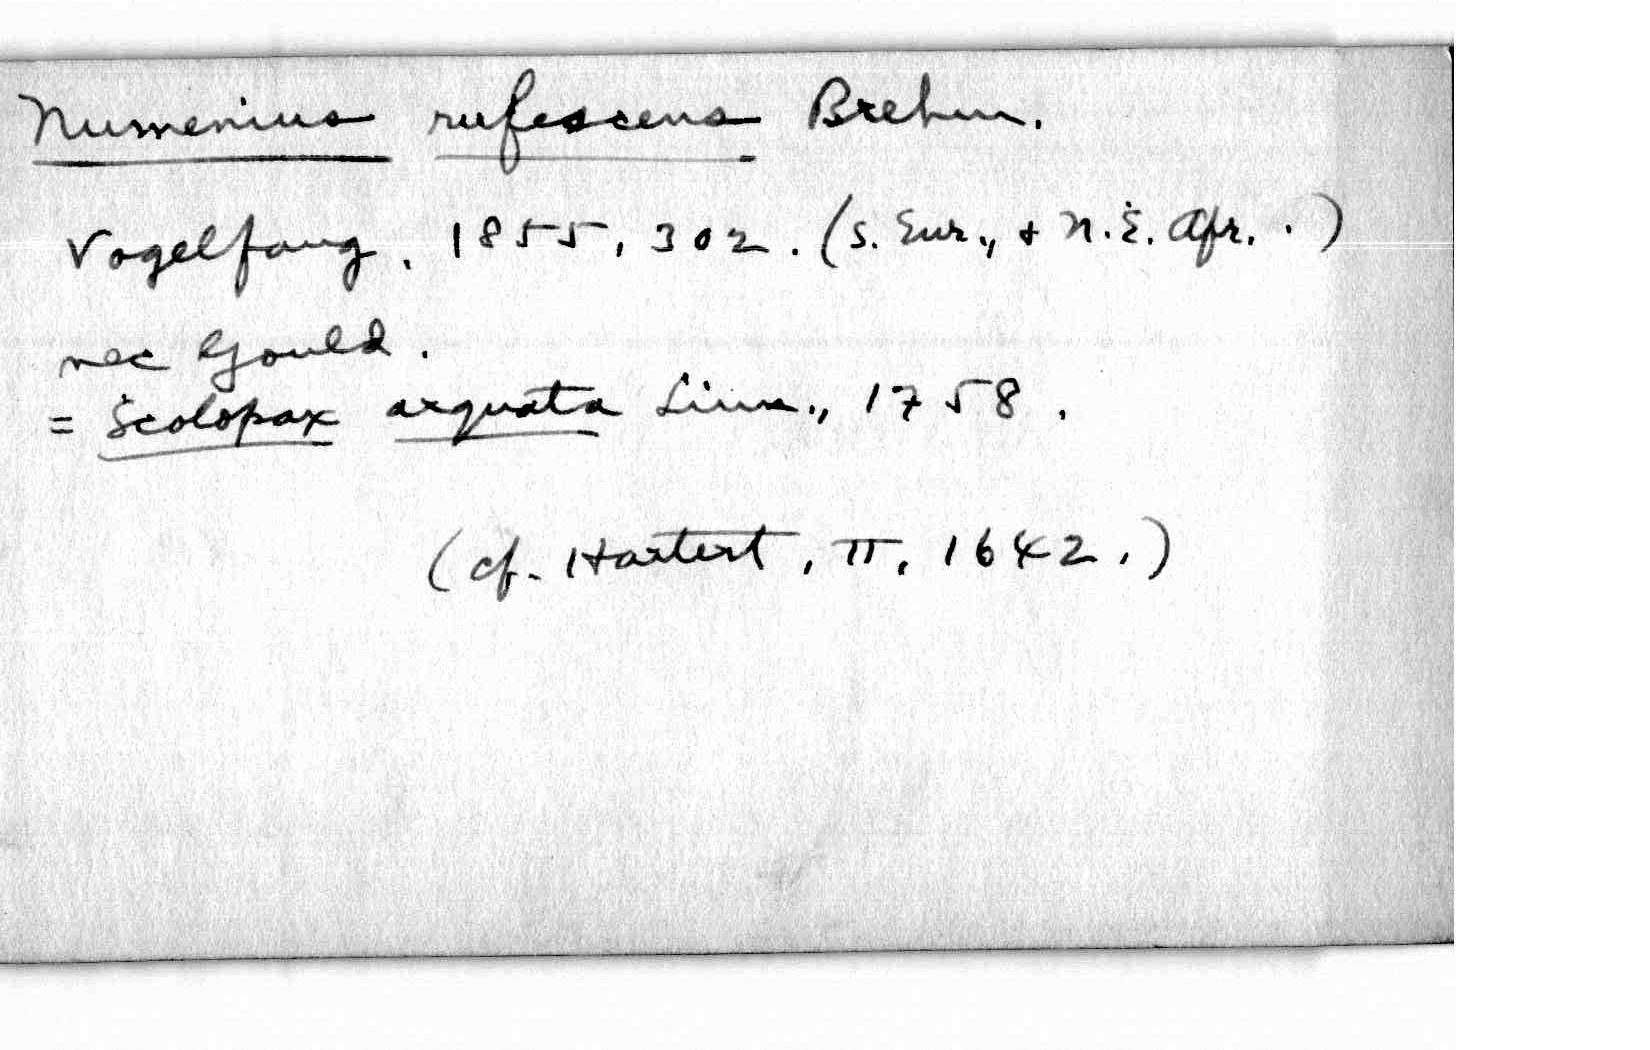 Numenius rufescens Brehm.
Vogelfang, 1855, 302. (S. Eur., + N.E. Afr..)
nec Gould.
= Scolopax arquata Linn., 1758.
(cf. Hartert, II, 1642.)